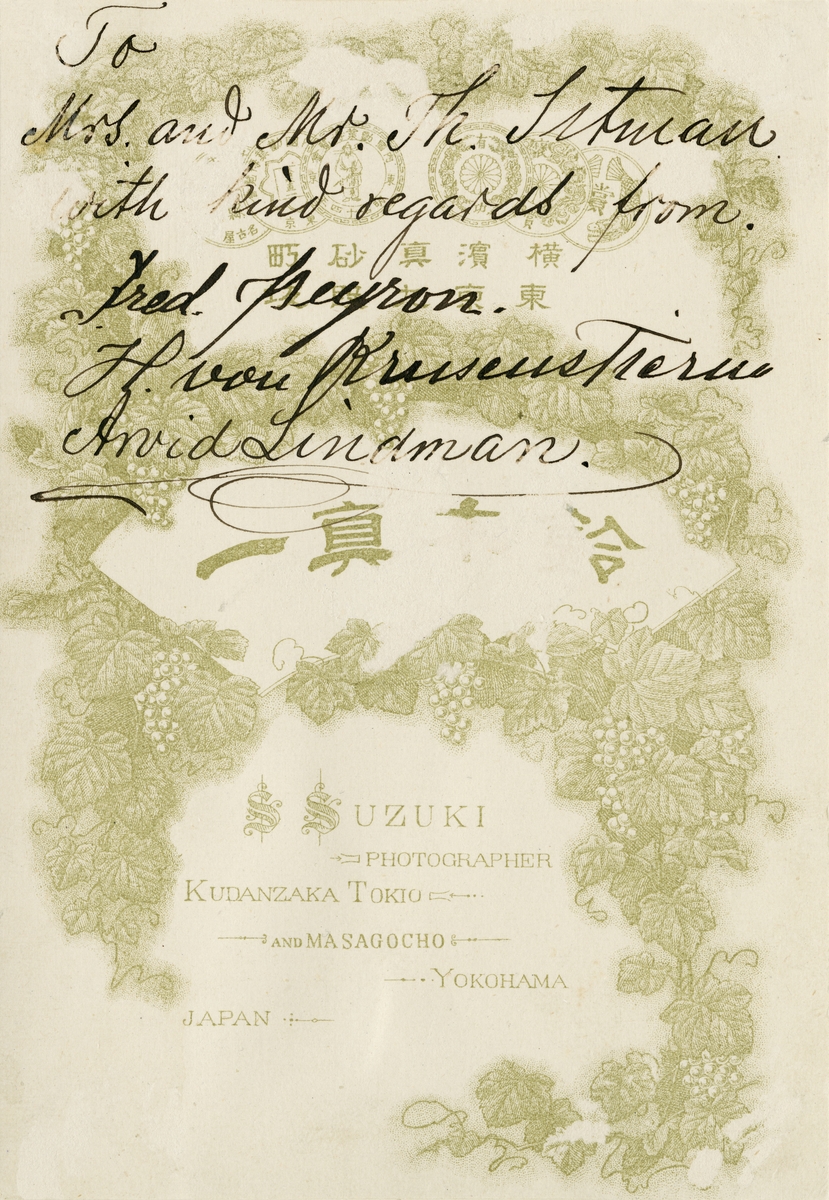 To
Mrs. and Mr. Th.
with kind regards from.
Fred. Peyron.
H. von Krusenstierna
Arvid Lindman.
名古屋
横濱真砂町
東
真一
S SUZUKI
PHOTOGRAPHER
KUDANZAKA TOKIO
AND MASAGOCHO
YOKOHAMA
JAPAN